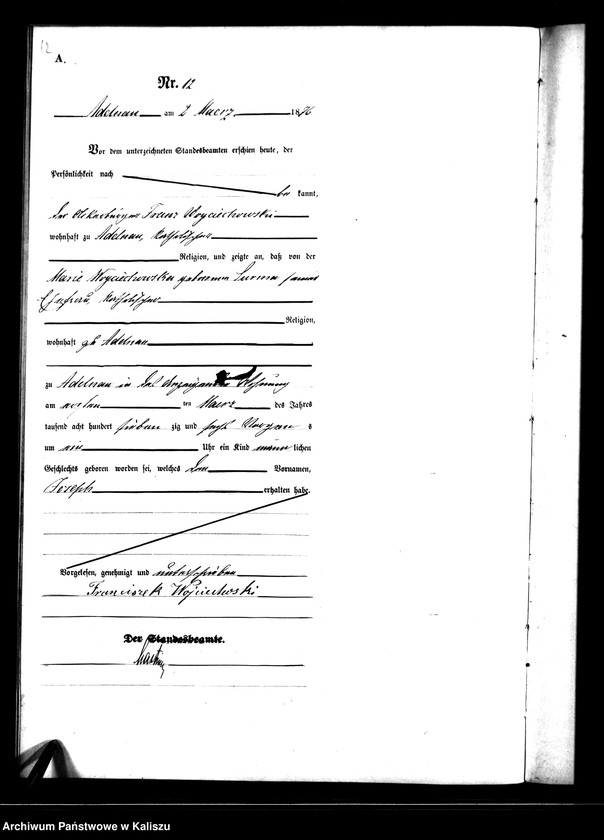 12
A.
Nr. 12
Adelnau am 2 Maerz 1876
Vor dem unterzeichneten Standesbeamten erschien heute, der
Persönlichkeit nach
be kannt,
der Ackerbürger Franz Woyciechowski
wohnhaft zu Adelnau, katholischer
Religion, und zeigte an, daß von der
Marie Woyciechowska geborenen Surma seiner
Ehefrau, katholischer
Religion,
wohnhaft zu Adelnau
zu Adelnau in des Anzeigenden Wohnung
am ersten ten Maerz des Jahres
tausend acht hundert sieben zig und sechs Morgens
um Uhr ein Kind männlichen
Geschlechts geboren worden sei, welches den Vornamen,
Joseph erhalten habe.
Vorgelesen, genehmigt und unterschrieben
Franciszek Wojciechwski
Der Standesbeamte.
Archiwum Państwowe w Kaliszu